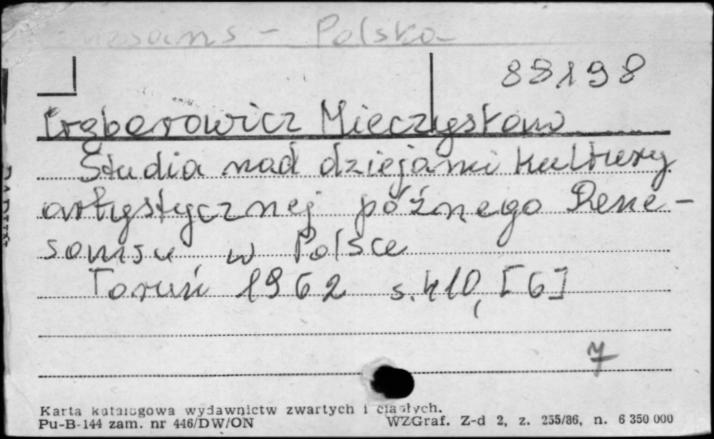 Renesans - Polska
88198
Gębarowicz Mieczysław
Studia nad dziejami kultury
artystycznej późnego Rene-
sansu w Polsce
Toruń 1962 s. 410, [6]
7
Karta katalogowa wydawnictw zwartych i ciągłych.
Pu-B-144 zam. nr 446/DW/ON WZGraf. Z-d 2, z. 255/86, n. 6 350 000